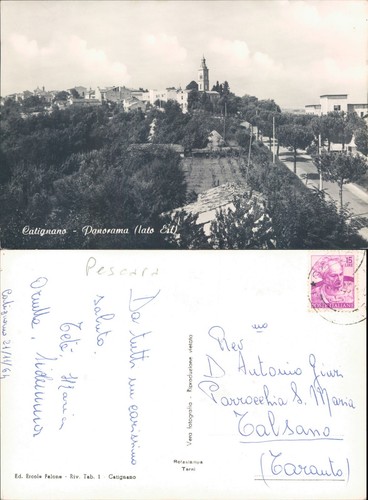 Catignano - Panorama (lato Est)
Pescara
Da tutti un carissimo
saluto.
Tetè, Maria
Catignano 21/4/64
15
POSTE ITALIANE
Vera fotografia - Riproduzione vietata
Rev mo
D. Antonio
Parrocchia S. Maria
Talsano
(Taranto)
Terni
Ed. Ercole Falone - Riv. Tab. 1 Catignano